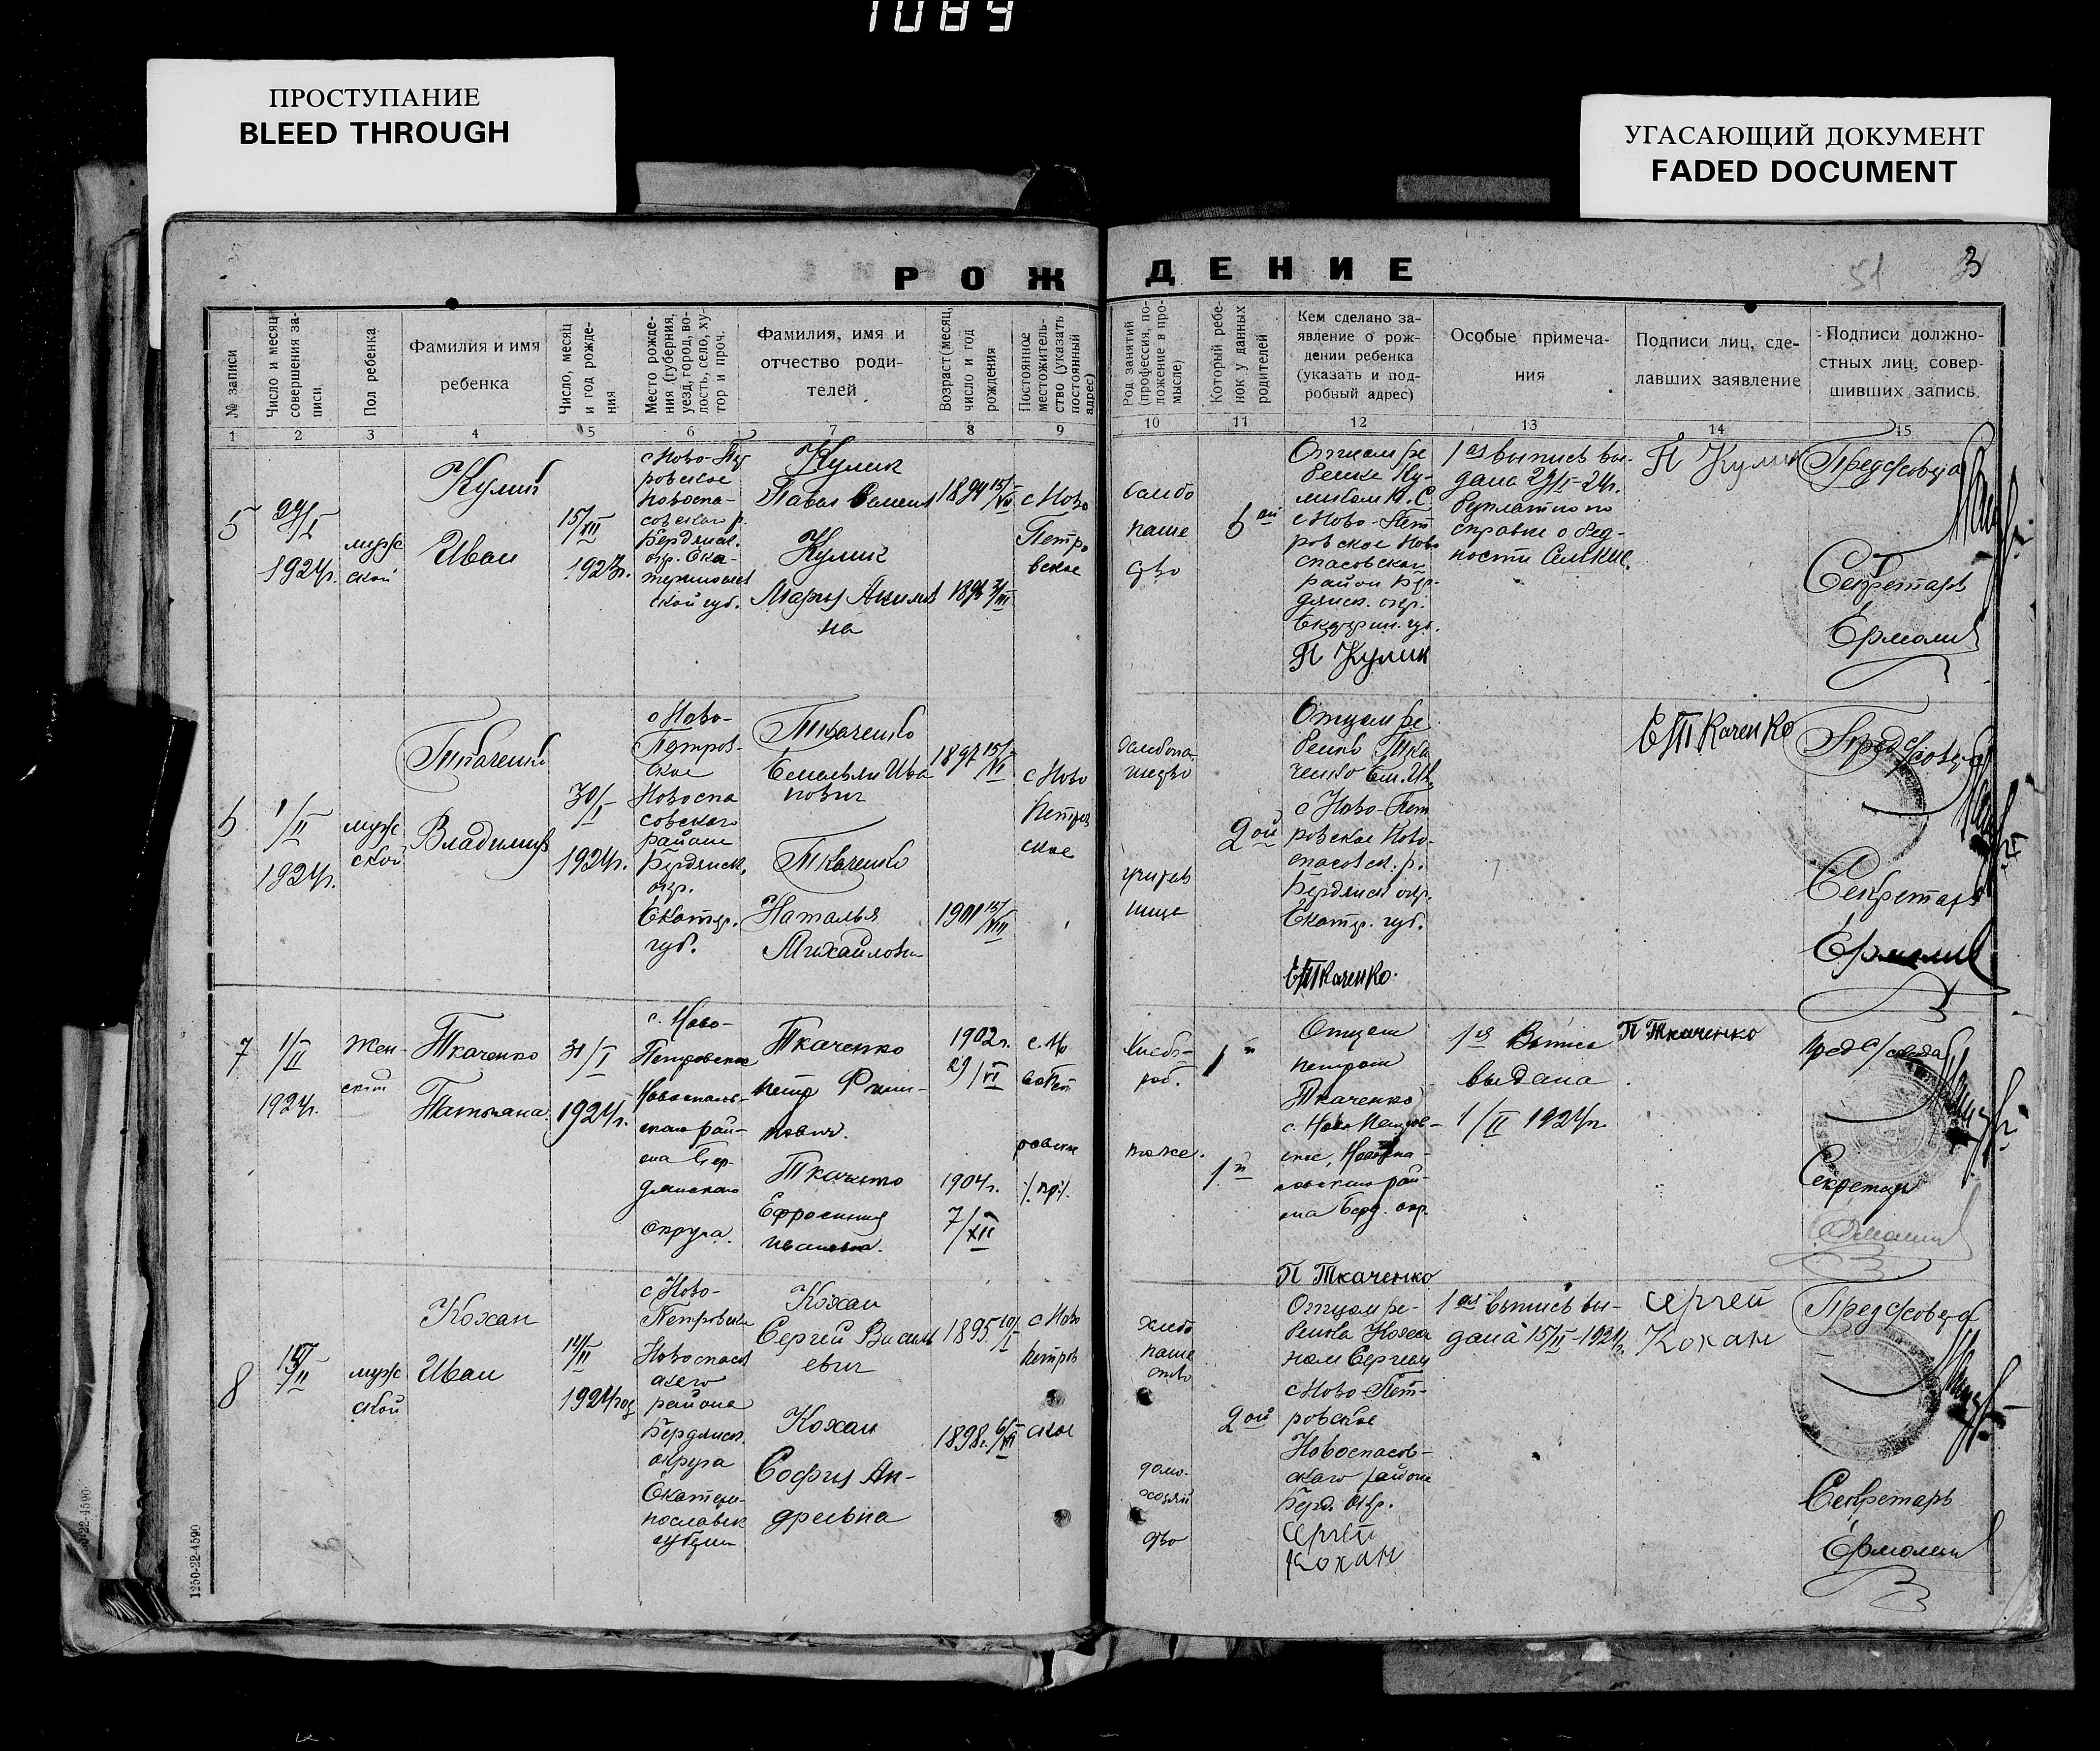 1089
ПРОСТУПАНИЕ
BLEED THROUGH
УГАСАЮЩИЙ ДОКУМЕНТ
FADED DOCUMENT
РОЖДЕНИЕ
51
3
№ записи
Число и месяц
совершения за-
писи
Пол ребенка
Фамилия и имя
ребенка
Число, месяц
и год рожде-
ния
Место рожде-
ния (губерния,
уезд, город, во-
лость, село, ху-
тор и проч.
Фамилия, имя и
отчество роди-
телей
Возраст (месяц,
число и год
рождения
Постоянное
местожитель-
ство (указать
постоянный
адрес)
Род занятий
(профессия, по-
ложение в про-
мысле)
Который ребе-
нок у данных
родителей
Кем сделано за-
явление о рож-
дении ребенка
(указать и под-
робный адрес)
Особые примеча-
ния
Подписи лиц, сде-
лавших заявление
Подписи должно-
стных лиц, совер-
шивших запись.
1 2 3 4 5 6 7 8 9 10 11 12 13 14 15
5
29/I
1924г.
муж
ской
Кулик
Иван
15/III
1923г.
с Ново-Пет
ровское
Новоспа-
совскаго р.
Бердянск.
окр. Ека-
ской губ.
Кулик
Павел
Кулик
Мария
на
1894 15/VII
с Ново
Петро
вское
паше
ство
6ой
Отцом ре
бенка Ку-
ликом П. С
с Ново-Пет
ровское Ново
спасовскаго
район Бер-
дянск. окр.
П Кулик
1ая выпись вы-
дана 29/I-24г.
бесплатно по
справке о бед-
ности
П Кулик
Пред с/совета
Секретарь
Ермолин
6
1/II
1924г.
муж
ской
Ткаченко
Владимир
30/I
1924г.
с Ново-
Петров-
ское
Новоспа
совскаго
района
Бердянск.
окр.
Екатер.
губ.
Ткаченко
Емельян Ива
нович
Ткаченко
Наталья
Михайловна
1897 15/VI
1901 15/VIII
с Ново
Петров
ское
2ой
Отцом ре
бенка Тка
ченко Ем. Ив
с Ново-Пет
ровское Ново-
спасовск. р.
Бердянск окр.
Екатер. губ.
Е Ткаченко.
Е Ткаченко
Пред с/совета
Секретарь
Ермолин
7
1/II
1924г.
Жен-
ский
Ткаченко
Татьяна
31/I
1924г.
с. Ново-
Петровское
Новоспасов-
скаго рай-
она Бер-
дянскаго
округа.
Ткаченко
Петр
Ткаченко
Ефросиния
Ивановна.
1902г.
29/VI
1904г.
7/XII
с. Но
во Пет
Хлебо-
роб.
тоже.
1й
1й
Отцом
Петром
Ткаченко
с. Ново Петров-
ское, Новоспа-
совскаго рай-
она Берд. окр.
П Ткаченко
1я Выпись
выдана
1/II 1924г.
П Ткаченко
Пред с/совета
Секретарь
Ермолин
8
15/II
муж
ской
Кохан
Иван
14/II
1924год
с Ново-
Петровское
Новоспасов
скаго
района
Бердянск.
округа
Екатери-
нославск
губерн
Кохан
Сергей Василь
евич
Кохан
София Ан-
дреевна
1895 10/I
1898г. 6/XII
с Ново
Петров
ское
Хлебо
паше
ство
домо-
хозяй
ство
2ой
Отцом ре-
бенка Коха
ном Сергеем
с Ново-Пет-
ровское
Новоспасов-
скаго района
Берд. окр.
Сергей
Кохан
1ая выпись вы-
дана 15/II-1924г.
Сергей
Кохан
Пред с/совета
Секретарь
Ермолин
1250-22-4590